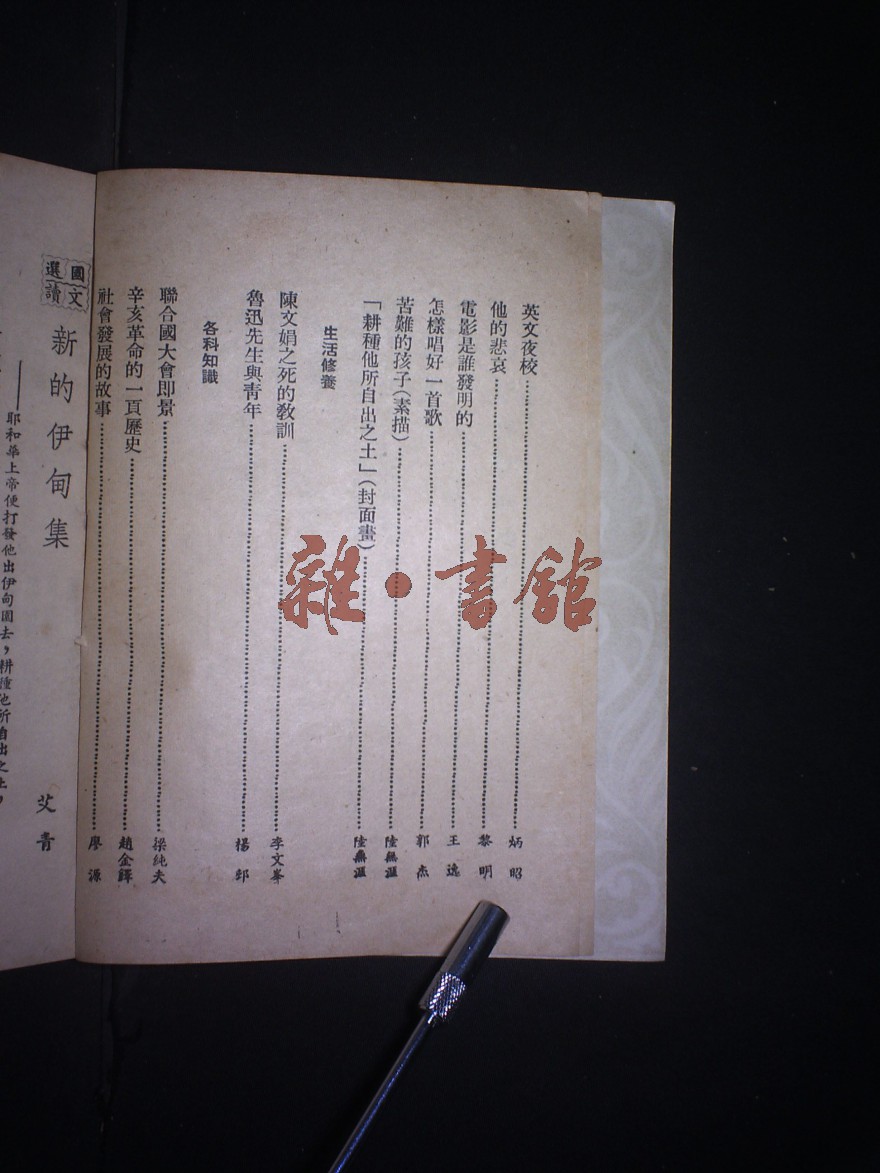 英文夜校………炳昭
他的悲哀………黎明
電影是誰發明的………王逸
怎樣唱好一首歌………郭杰
苦難的孩子(素描)………陸無涯
「耕種他所自出之土」(封面畫)………陸無涯
生活修養
陳文娟之死的教訓………李文峯
魯迅先生與青年………楊邨
各科知識
聯合國大會即景………梁純夫
辛亥革命的一頁歷史………趙金鐸
社會發展的故事………廖源
國文選讀
新的伊甸集
艾青
——耶和華上帝便打發他出伊甸園去，耕種他所自出之土，
雜·書館